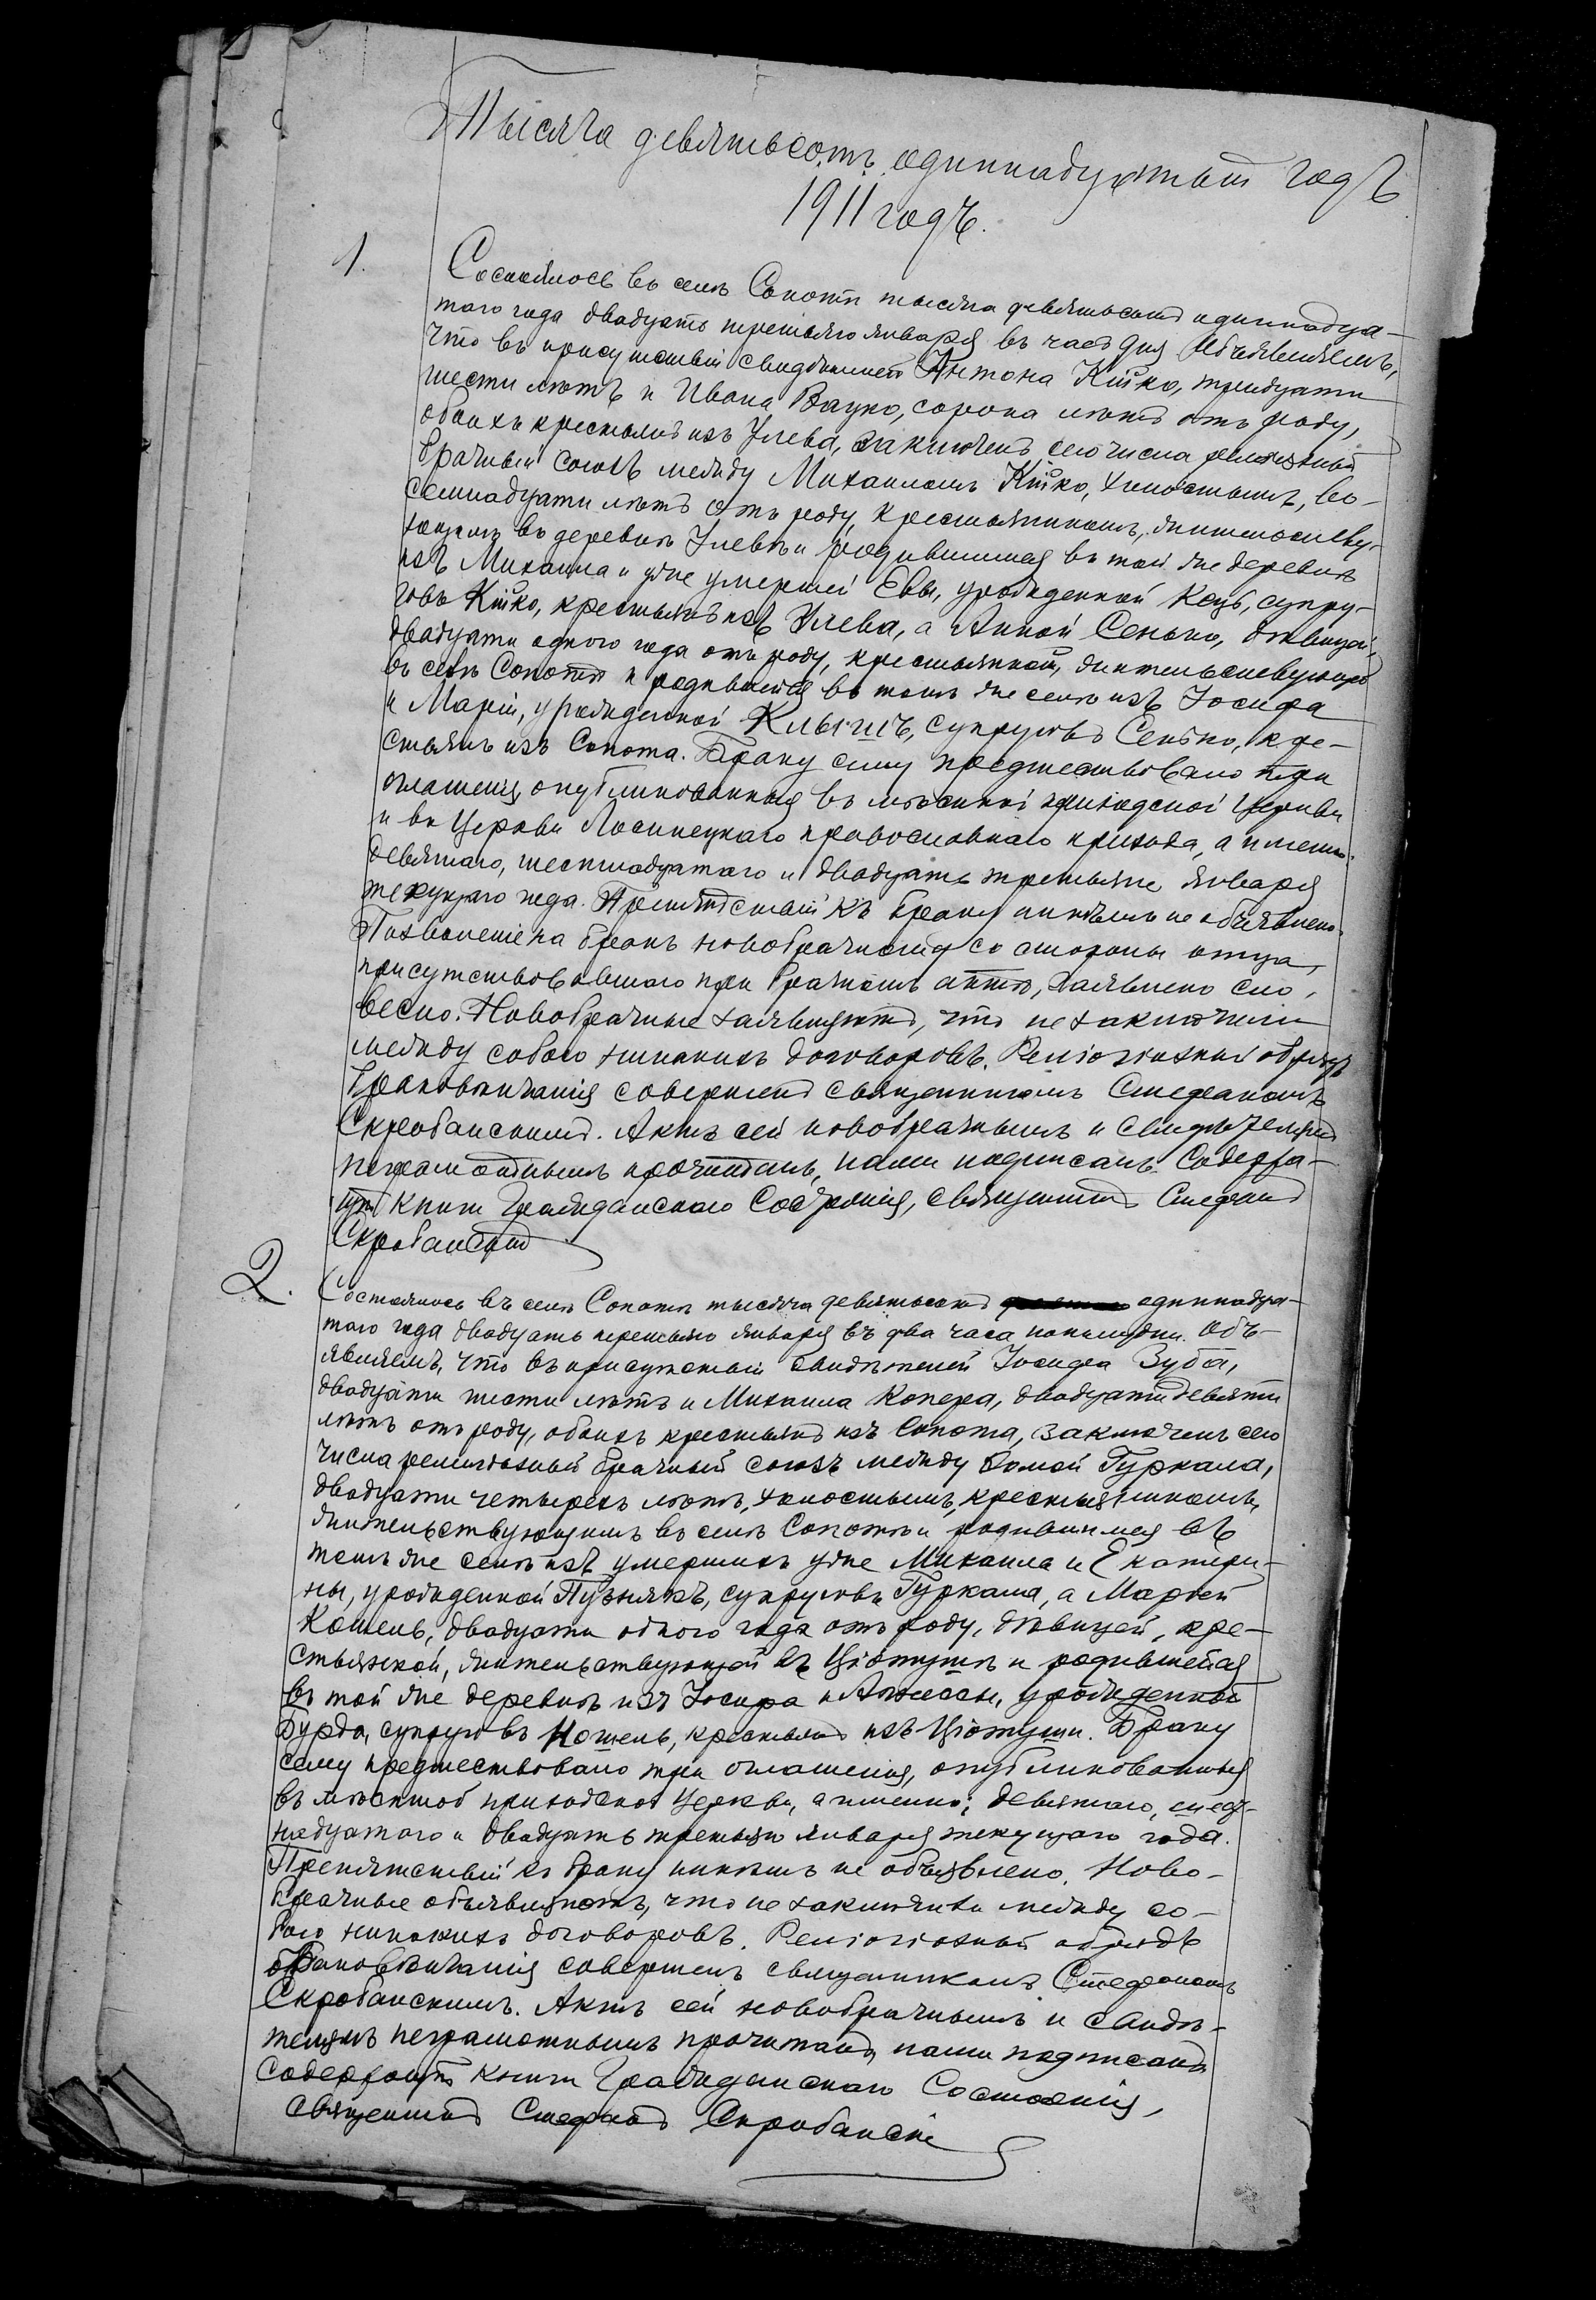 Тысяча девятьсотъ одиннадцатый годъ
1911 годъ.
1.
Состоялось въ селѣ Сопотѣ тысяча девятьсотъ одиннадца-
таго года двадцать третьяго января въ часъ дня. Объявляемъ,
что въ присутствіи свидѣтелей Антона Кійко, тридцати
шести лѣтъ и Ивана Вацко, сорока лѣтъ отъ роду,
обоихъ крестьянъ изъ Улева, заключенъ сего числа религіозный
брачный союзъ между Михаиломъ Кійко, холостымъ, во-
семнадцати лѣтъ отъ роду, крестьяниномъ, жительству-
ющимъ въ деревнѣ Улевѣ и родившимся въ той же деревнѣ
изъ Михаила и уже умершей Евы, урожденной Коцъ, супру-
говъ Кійко, крестьянъ изъ Улева, а Анной Сенько, дѣвицей,
двадцати одного года отъ роду, крестьянкой, жительствующей
въ селѣ Сопотѣ и родившейся въ томъ же селѣ изъ Іосифа
и Маріи, урожденной Клышъ, супруговъ Сенько, кре-
стьянъ изъ Сопота. Браку сему предшествовало три
оглашенія, опубликованныя въ мѣстной приходской церкви
и въ церкви Лосинецкаго православнаго прихода, а именно:
девятаго, шестнадцатаго и двадцать третьяго января
текущаго года. Препятствій къ браку никѣмъ не объявлено.
Позволеніе на бракъ новобрачному со стороны отца,
присутствовавшаго при брачномъ актѣ, заявлено сло-
весно. Новобрачные заявляютъ, что не заключили
между собою никакихъ договоровъ. Религіозный обрядъ
бракосочетанія совершенъ священникомъ Стефаномъ
Скробанскимъ. Актъ сей новобрачнымъ и свидѣтелямъ
неграмотнымъ прочитанъ, нами подписанъ. Содержа-
щій книги Гражданскаго Состоянія, священникъ Стефанъ
Скробанскій
2.
Состоялось въ селѣ Сопотѣ тысяча девятьсотъ одиннадца-
таго года двадцать третьяго января въ два часа пополудни. Объ-
являемъ, что въ присутствіи свидѣтелей Іосифа Зуба,
двадцати шести лѣтъ и Михаила Копера, двадцати девяти
лѣтъ отъ роду, обоихъ крестьянъ изъ Сопота, заключенъ сего
числа религіозный брачный союзъ между Ѳомой Гуркала,
двадцати четырехъ лѣтъ, холостымъ, крестьяниномъ,
жительствующимъ въ селѣ Сопотѣ и родившимся въ
томъ же селѣ изъ умершихъ уже Михаила и Екатери-
ны, урожденной Пузнякъ, супруговъ Гуркала, а Маріей
Кошель, двадцати одного года отъ роду, дѣвицей, кре-
стьянкой, жительствующей въ Цѣотушѣ и родившейся
въ той же деревнѣ изъ Іосифа и Агнессы, урожденной
Бурда, супруговъ Кошель, крестьянъ изъ Цѣотуши. Браку
сему предшествовало три оглашенія, опубликованныя
въ мѣстной приходской церкви, а именно: девятаго, шест-
надцатаго и двадцать третьяго января текущаго года.
Препятствій къ браку никѣмъ не объявлено. Ново-
брачные объявляютъ, что не заключили между со-
бою никакихъ договоровъ. Религіозный обрядъ
бракосочетанія совершенъ священникомъ Стефаномъ
Скробанскимъ. Актъ сей новобрачнымъ и свидѣ-
телямъ неграмотнымъ прочитанъ, нами подписанъ.
Содержащій книги Гражданскаго Состоянія,
Священникъ Стефанъ Скробанскій